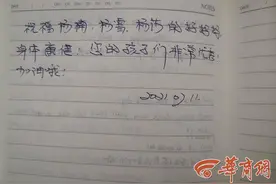 祝福杨楠、杨磊、杨阳的妈妈
身体康健！您的孩子们非常
加油哦！
2021.07.11.
华商网